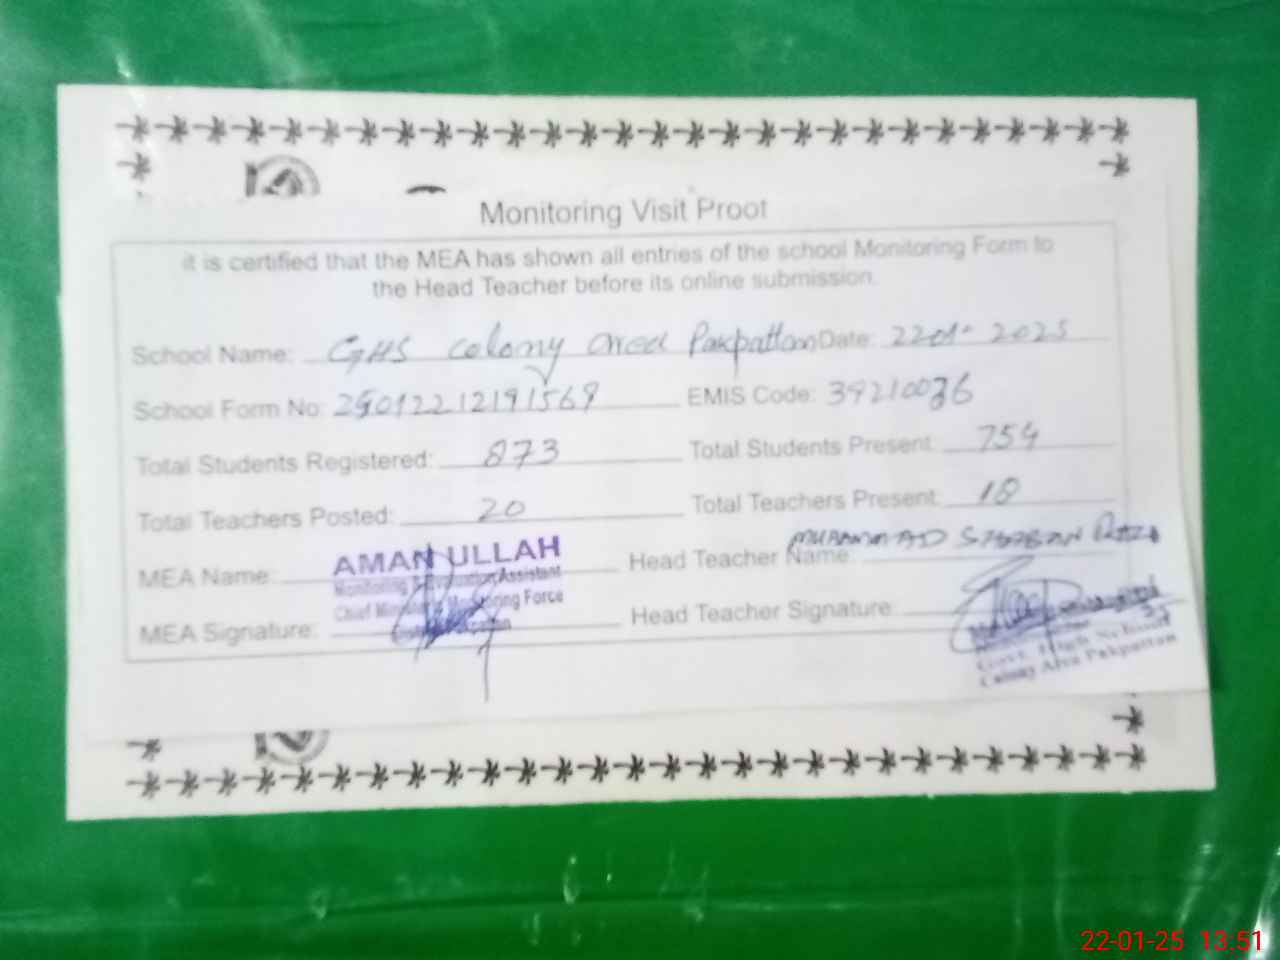 Monitoring Visit Proof
it is certified that the MEA has shown all entries of the school Monitoring Form to
the Head Teacher before its online submission.
School Name: GHS Colony Area Pakpattan Date: 22-01-2025
School Form No: 25012212191569 EMIS Code: 39210036
Total Students Registered: 873 Total Students Present: 754
Total Teachers Posted: 20 Total Teachers Present: 18
MEA Name: AMAN ULLAH Head Teacher Name: MUHAMMAD SHABAN RAZA
Monitoring & Evaluation Assistant
Chief Minister's Monitoring Force
MEA Signature: Head Teacher Signature:
Govt. High School
Colony Area Pakpattan
22-01-25 13:51